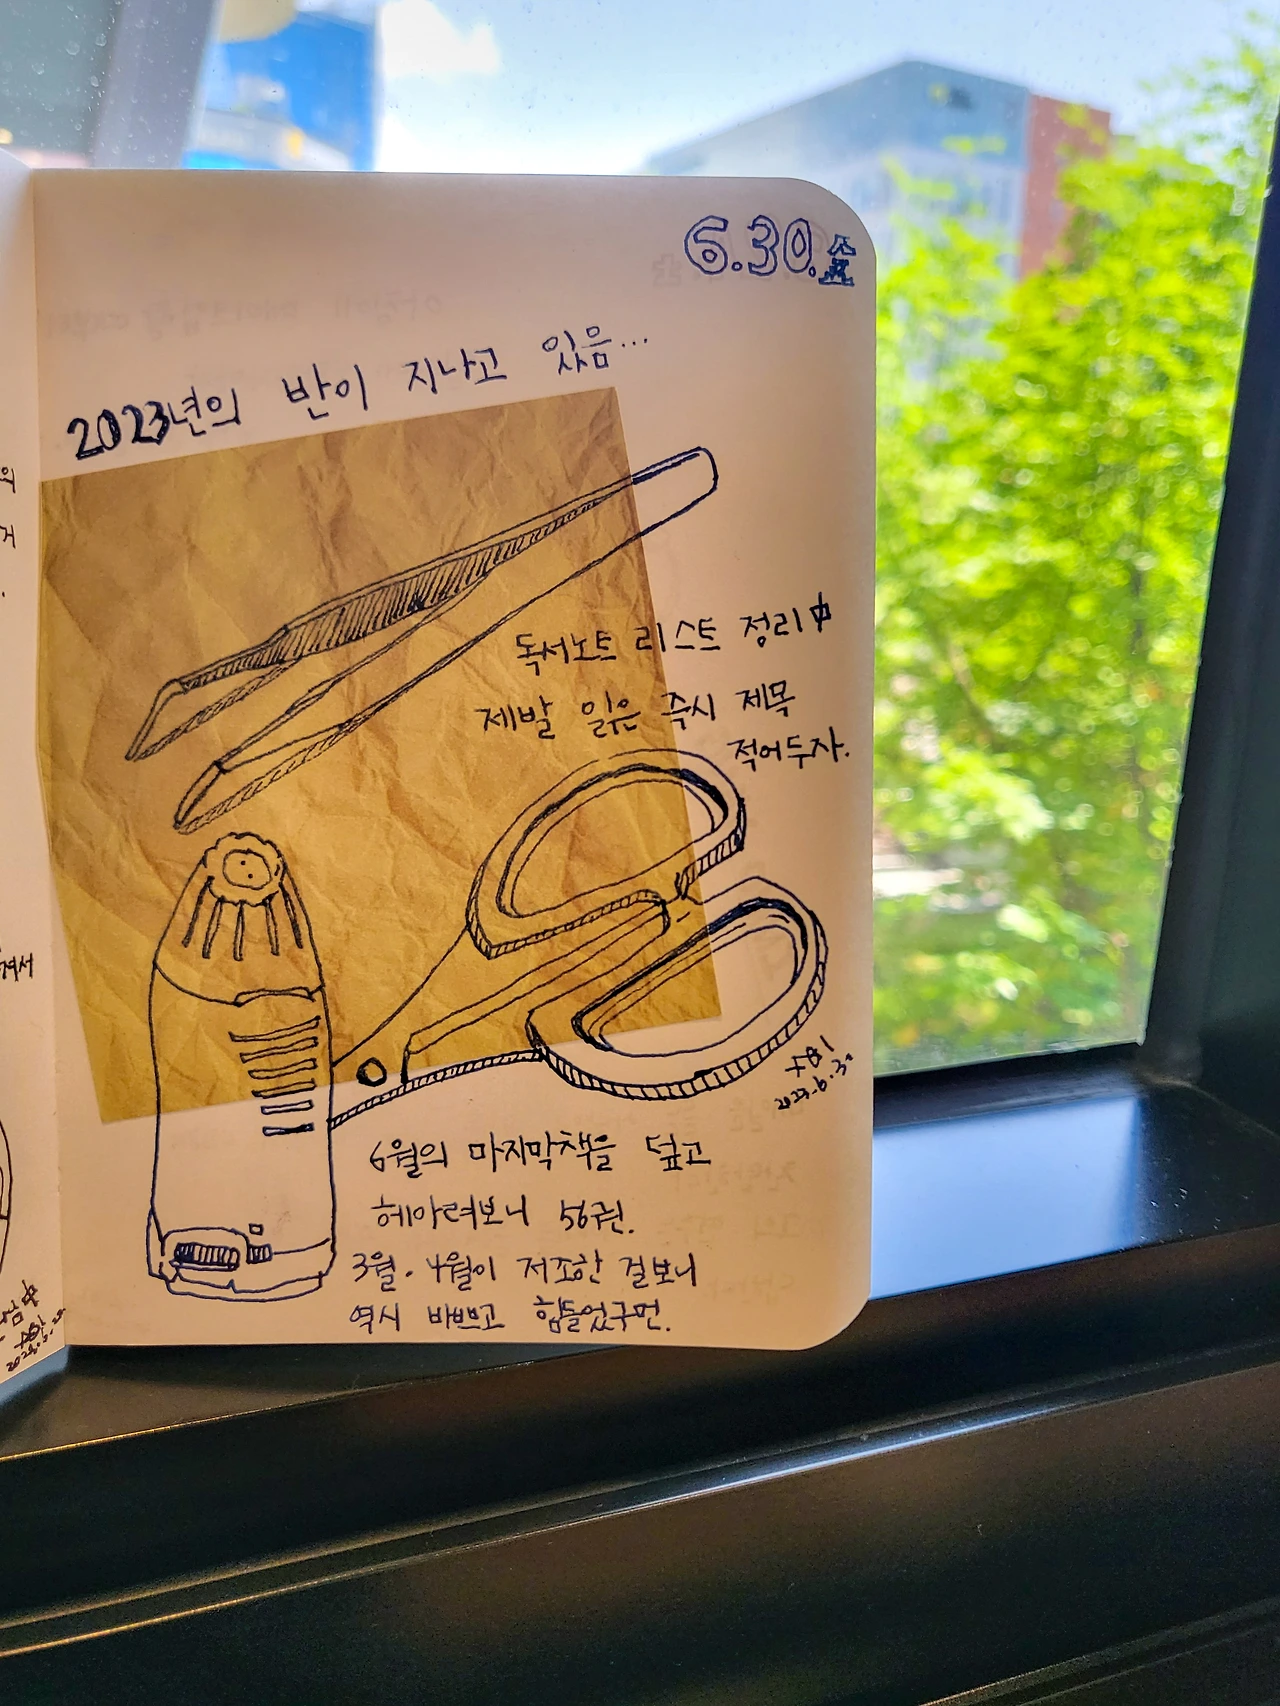 6.30.금
2023년의 반이 지나고 있음...
독서노트 리스트 정리中
제발 읽은 즉시 제목
적어두자.
2023.6.30
6월의 마지막책을 덮고
헤아려보니 56권.
3월.4월이 저조한 걸보니
역시 바쁘고 힘들었구먼.
의
거